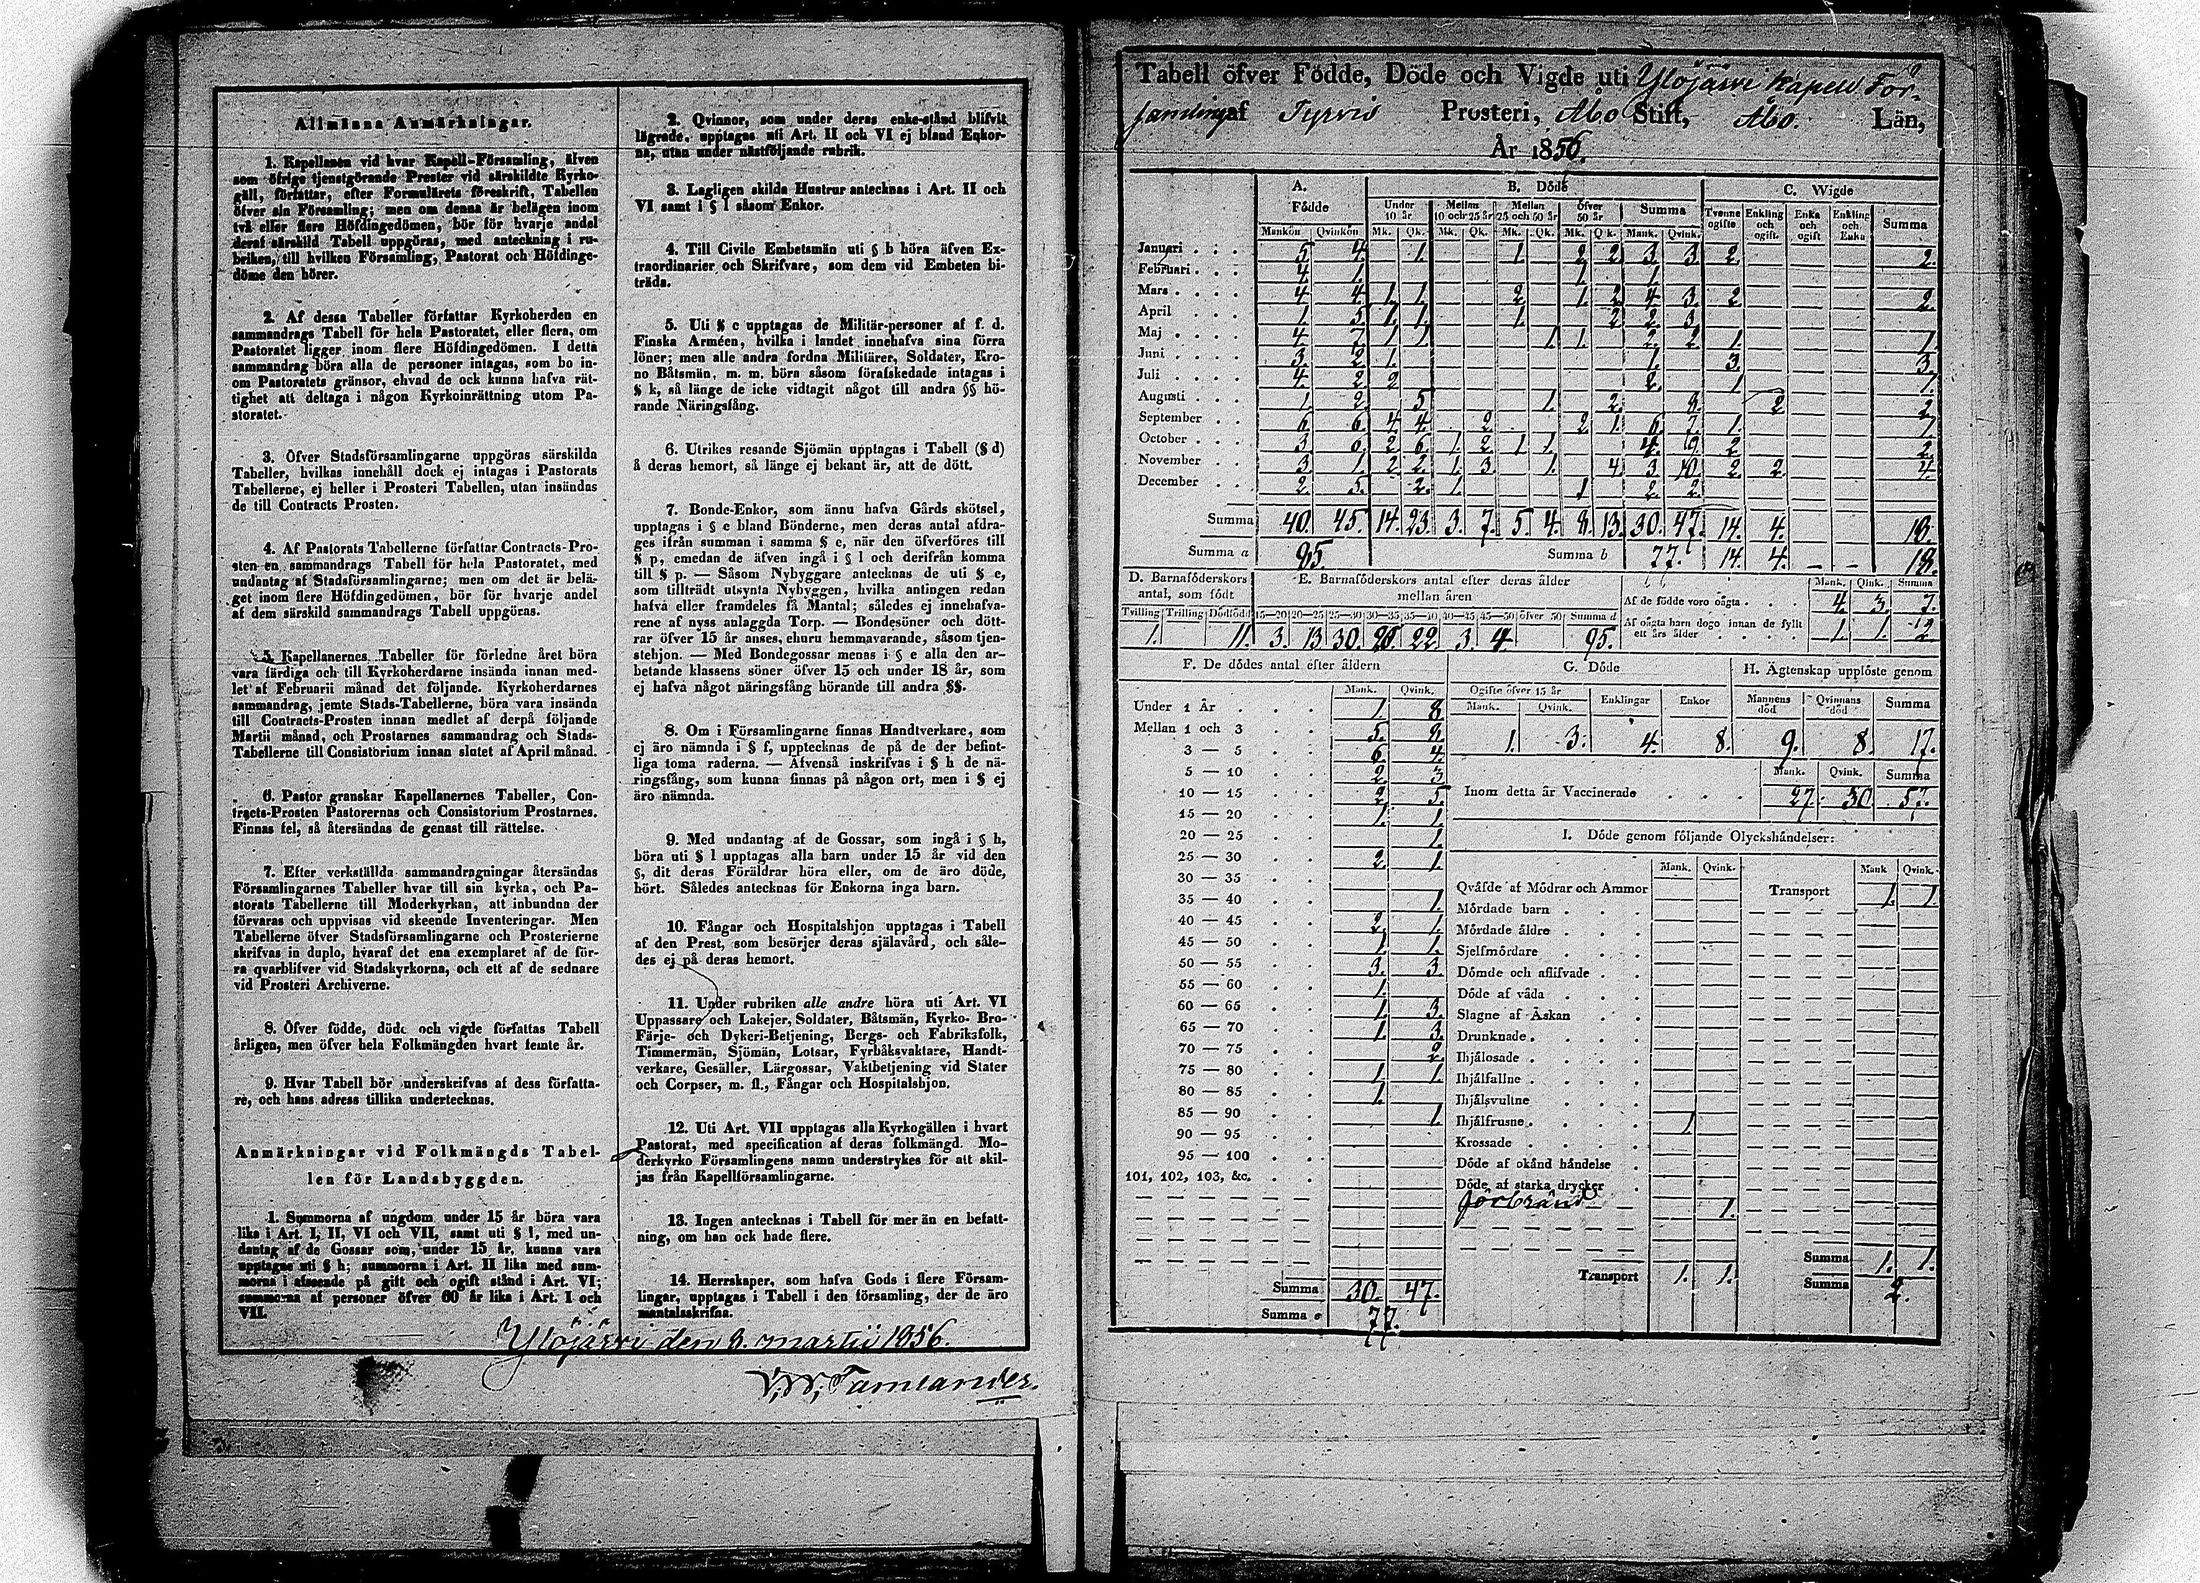 Allmänna Anmärkningar.
1. Kapellanen vid hvar Kapell-Församling, äfven
som öfrige tjenstgörande Prester vid särskildte Kyrko-
gäll, författar, efter Formulärets föreskrift, Tabellen
öfver sin Församling; men om denna är belägen inom
två eller flere Höfdingedömen, bör för hvarje andel
deraf särskild Tabell uppgöras, med anteckning i ru-
briken, till hvilken Församling, Pastorat och Höfdinge-
döme den hörer.
2. Af dessa Tabeller författar Kyrkoherden en
sammandrags Tabell för hela Pastoratet, eller flera, om
Pastoratet ligger inom flere Höfdingedömen. I detta
sammandrag böra alla de personer intagas, som bo in-
om Pastoratets gränsor, ehvad de ock kunna hafva rät-
tighet att deltaga i någon Kyrkoinrättning utom Pa-
storatet.
3. Öfver Stadsförsamlingarne uppgöras särskilda
Tabeller, hvilkas innehåll dock ej intagas i Pastorats
Tabellerne, ej heller i Prosteri Tabellen, utan insändas
de till Contracts Prosten.
4. Af Pastorats Tabellerne författar Contracts-Pro-
sten en sammandrags Tabell för hela Pastoratet, med
undantag af Stadsförsamlingarne; men om det är belä-
get inom flere Höfdingedömen, bör för hvarje andel
af dem särskild sammandrags Tabell uppgöras.
5. Kapellanernes Tabeller för förledne året böra
vara färdiga och till Kyrkoherdarne insända innan med-
let af Februarii månad det följande. Kyrkoherdarnes
sammandrag, jemte Stads-Tabellerne, böra vara insända
till Contracts-Prosten innan medlet af derpå följande
Martii månad, och Prostarnes sammandrag och Stads-
Tabellerne till Consistorium innan slutet af April månad.
6. Pastor granskar Kapellanernes Tabeller, Con-
tracts-Prosten Pastorernas och Consistorium Prostarnes.
Finnas fel, så återsändas de genast till rättelse.
7. Efter verkställda sammandragningar återsändas
Församlingarnes Tabeller hvar till sin kyrka, och Pa-
storats Tabellerne till Moderkyrkan, att inbundna der
förvaras och uppvisas vid skeende Inventeringar. Men
Tabellerne öfver Stadsförsamlingarne och Prosterierne
skrifvas in duplo, hvaraf det ena exemplaret af de för-
ra qvarblifver vid Stadskyrkorna, och ett af de sednare
vid Prosteri Archiverne.
8. Öfver födde, döde och vigde författas Tabell
årligen, men öfver hela Folkmängden hvart femte år.
9. Hvar Tabell bör underskrifvas af dess författa-
re, och hans adress tillika undertecknas.
Anmärkningar vid Folkmängds Tabel-
len för Landsbyggden.
1. Summorna af ungdom under 15 år böra vara
lika i Art. I, II, VI och VII, samt uti § l, med un-
dantag af de Gossar som, under 15 år, kunna vara
upptagne uti § h; summorna i Art. II lika med sum-
morna i afseende på gift och ogift stånd i Art. VI;
summorna af personer öfver 60 år lika i Art. I och
VII.
2. Qvinnor, som under deras enke-stånd blifvit
lägrade, upptagas uti Art. II och VI ej bland Enkor-
na, utan under nästföljande rubrik.
3. Lagligen skilda Hustrur antecknas i Art. II och
VI samt i § l såsom Enkor.
4. Till Civile Embetsmän uti § b höra äfven Ex-
traordinarier och Skrifvare, som dem vid Embeten bi-
träda.
5. Uti § c upptagas de Militär-personer af f. d.
Finska Arméen, hvilka i landet innehafva sina förra
löner; men alla andra fordna Militärer, Soldater, Kro-
no Båtsmän, m. m. böra såsom förafskedade intagas i
§ k, så länge de icke vidtagit något till andra §§ hö-
rande Näringsfång.
6. Utrikes resande Sjömän upptagas i Tabell (§ d)
å deras hemort, så länge ej bekant är, att de dött.
7. Bonde-Enkor, som ännu hafva Gårds skötsel,
upptagas i § e bland Bönderne, men deras antal afdra-
ges ifrån summan i samma § e, när den öfverföres till
§ p, emedan de äfven ingå i § l och derifrån komma
till § p. — Såsom Nybyggare antecknas de uti § e,
som tillträdt utsynta Nybyggen, hvilka antingen redan
hafva eller framdeles få Mantal; således ej innehafva-
rene af nyss anlaggda Torp. — Bondesöner och dött-
rar öfver 15 år anses, ehuru hemmavarande, såsom tjen-
stehjon. — Med Bondegossar menas i § e alla den ar-
betande klassens söner öfver 15 och under 18 år, som
ej hafva något näringsfång hörande till andra §§.
8. Om i Församlingarne finnas Handtverkare, som
ej äro nämnda i § f, upptecknas de på de der befint-
liga toma raderna. — Äfvenså inskrifvas i § h de nä-
ringsfång, som kunna finnas på någon ort, men i § ej
äro nämnda.
9. Med undantag af de Gossar, som ingå i § h,
böra uti § l upptagas alla barn under 15 år vid den
§, dit deras Föräldrar höra eller, om de äro döde,
hört. Således antecknas för Enkorna inga barn.
10. Fångar och Hospitalshjon upptagas i Tabell
af den Prest, som besörjer deras själavård, och såle-
des ej på deras hemort.
11. Under rubriken alle andre höra uti Art. VI
Uppassare och Lakejer, Soldater, Båtsmän, Kyrko- Bro-
Färje- och Dykeri-Betjening, Bergs- och Fabriksfolk,
Timmermän, Sjömän, Lotsar, Fyrbåksvaktare, Handt-
verkare, Gesäller, Lärgossar, Vaktbetjening vid Stater
och Corpser, m. fl., Fångar och Hospitalshjon.
12. Uti Art. VII upptagas alla Kyrkogällen i hvart
Pastorat, med specification af deras folkmängd. Mo-
derkyrko Församlingens namn understrykes för att skil-
jas från Kapellförsamlingarne.
13. Ingen antecknas i Tabell för mer än en befatt-
ning, om han ock hade flere.
14. Herrskaper, som hafva Gods i flere Försam-
lingar, upptagas i Tabell i den församling, der de äro
mantalsskrifna.
Ylöjärvi den 8. martii 1856.
V. W. Tamlander.
Tabell öfver Födde, Döde och Vigde uti Ylöjärvi Kapell För-
samling af Tyrvis Prosteri, Åbo Stift, Åbo. Län,
År 1856.
A. Födde B. Döde C. Wigde
Under 10 år Mellan 10 och 25 år Mellan 25 och 50 år öfver 50 år Summa Tvenne ogifte Enkling och ogift. Enka och ogift Enkling och Enka Summa
Mankön Qvinkön Mk. Qk. Mk. Qk. Mk. Qk. Mk. Qk. Mank. Qvink.
Januari 5 4. 1. 1 2 2 3 3 2. 2.
Februari 4 1. 1 1.
Mars 4 4 1. 1. 2 1. 2 4 3. 2 2
April 1 5 1 1. 1. 2 2 3
Maj 4 7 1 1 1 1. 2. 2 1. 1
Juni 3 2 1. 1. 3. 3.
Juli 4. 2 2 2. 1 1.
Augusti 1. 2. 5 1. 2. 8. 2 2
September 6 6 4 4. 2 2 1. 6 7. 1. 1
October 3 6 2 6. 1. 2 1 1. 4. 9. 2 2.
November 3 1. 2 2 1. 3 1. 4 3 10. 2. 2 4.
December 2 5. 2. 1. 1 2. 2
Summa 40. 45. 14. 23. 3. 7. 5. 4. 8. 13. 30. 47. 14. 4. 18.
Summa a 85. Summa b 77. 14. 4. – – 18.
D. Barnaföderskors antal, som födt
Tvilling Trilling Dödfödd
1. 11.
E. Barnaföderskors antal efter deras ålder mellan åren
15—20 20—25 25—30 30—35 35—40 40—45 45—50 öfver 50 Summa d
3. 13 30. 20. 22. 3. 4 95.
Mank. Qink. Summa
Af de födde voro oägta 4. 3. 7.
Af oägta barn dogo innan de fyllt
ett års ålder 1. 1. 2
F. De dödes antal efter åldern
Mank. Qvink.
Under 1 År 1. 8
Mellan 1 och 3 5. 8.
3 — 5 6. 4.
5 — 10 2 3
10 — 15 2 5.
15 — 20 1. 1.
20 — 25 1.
25 — 30 2. 1.
30 — 35
35 — 40 1.
40 — 45 2. 1.
45 — 50 1 1.
50 — 55 3. 3
55 — 60 1.
60 — 65 1 3.
65 — 70 1. 3.
70 — 75 2.
75 — 80 1. 1.
80 — 85 1.
85 — 90 1.
90 — 95
95 — 100
101, 102, 103, &c.
Summa 30. 47.
Summa e 77.
G. Döde
Ogifte öfver 15 år Enklingar Enkor
Mank. Qvink.
1. 3. 4. 8.
H. Ägtenskap upplöste genom
Mannens död Qvinnans död Summa
9. 8. 17.
Mank. Qvink. Summa
Inom detta år Vaccinerade 27. 30 57.
I. Döde genom följande Olyckshändelser:
Mank. Qvink. Mank Qvink.
Qväfde af Mödrar och Ammor Transport 1. 1.
Mördade barn
Mördade äldre
Sjelfmördare
Dömde och aflifvade
Döde af våda
Slagne af Åskan
Drunknade
Ihjälosade
Ihjälfallne
Ihjälsvultne
Ihjälfrusne 1
Krossade
Döde af okänd händelse
Döde af starka drycker
förbränd 1.
Summa 1. 1.
Transport 1. 1.
Summa 2.